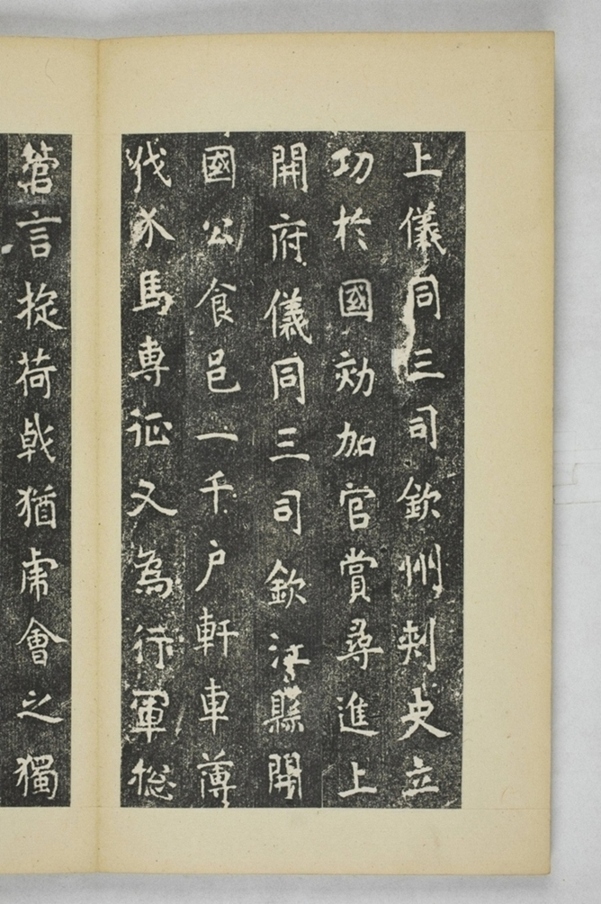 上儀同三司欽州刾史立
功於國効加官賞尋進上
開府儀同三司欽江縣開
國公食邑一千户軒車薄
伐水馬専征又為行軍総
管言掟荷戟猶虎會之獨